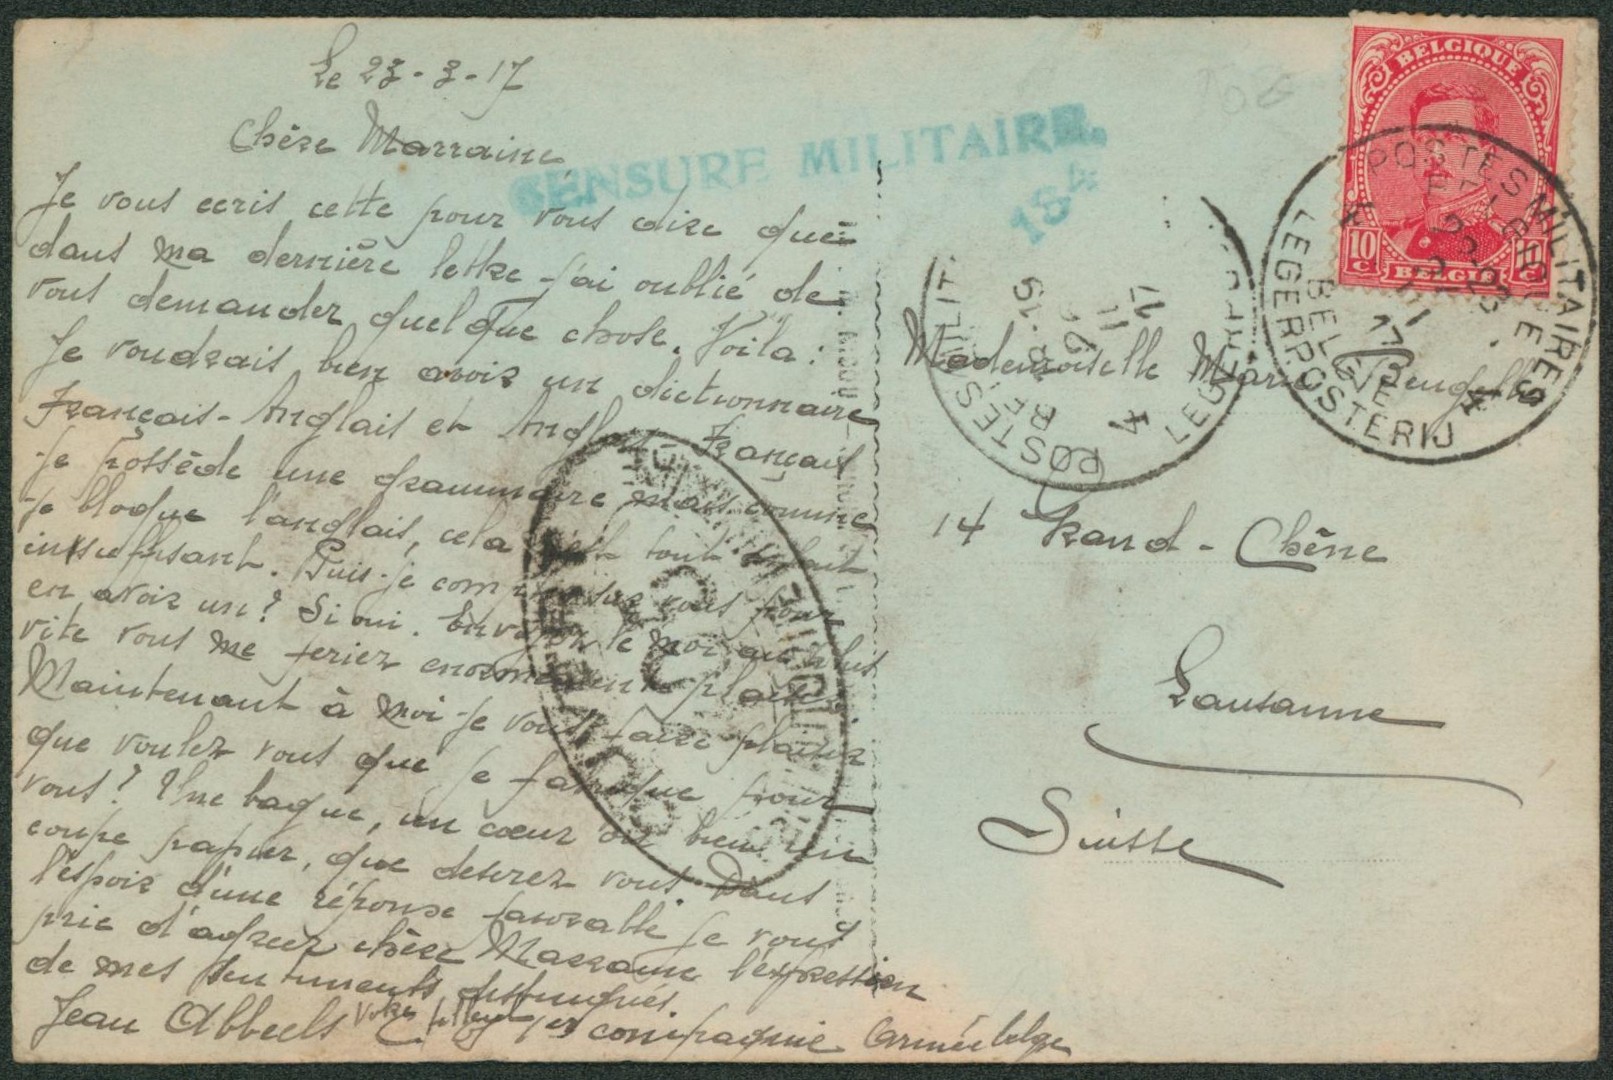 Le 23-3-17
Chère Marraine
Je vous ecris cette pour vous dire que
dans ma dernière lettre j'ai oublié de
vous demander quelque chose. Voila :
Je voudrais bien avoir un dictionnaire
Français-Anglais et Anglais Français
je possède une grammaire mais comme
je bloque l'anglais, cela est tout à fait
insuffisant. Puis-je compter sur vous pour
en avoir un? Si oui. Envoyez le moi au plus
vite vous me feriez enormement plaisir
Maintenant à moi je vous faire plaisir
que voulez vous que je fabrique pour
vous? Une bague, un cœur ou bien un
coupe papier, que desirez vous. Dans
l'espoir d'une réponse favorable je vous
prie d'agreer chère Marraine l'expression
de mes sentiments distingués
Jean Abbeels Votre filleul 1er compagnie Armée belge
CENSURE MILITAIRE.
184
BELGIQUE
10 C
10 C
BELGIE
POSTES MILITAIRES
BELGIQUE
BELGIE
LEGERPOSTERIJ
4
POSTES MILIT
LEGERPO
4
Mademoiselle Marie
14 Grand-Chêne
Lausanne
Suisse